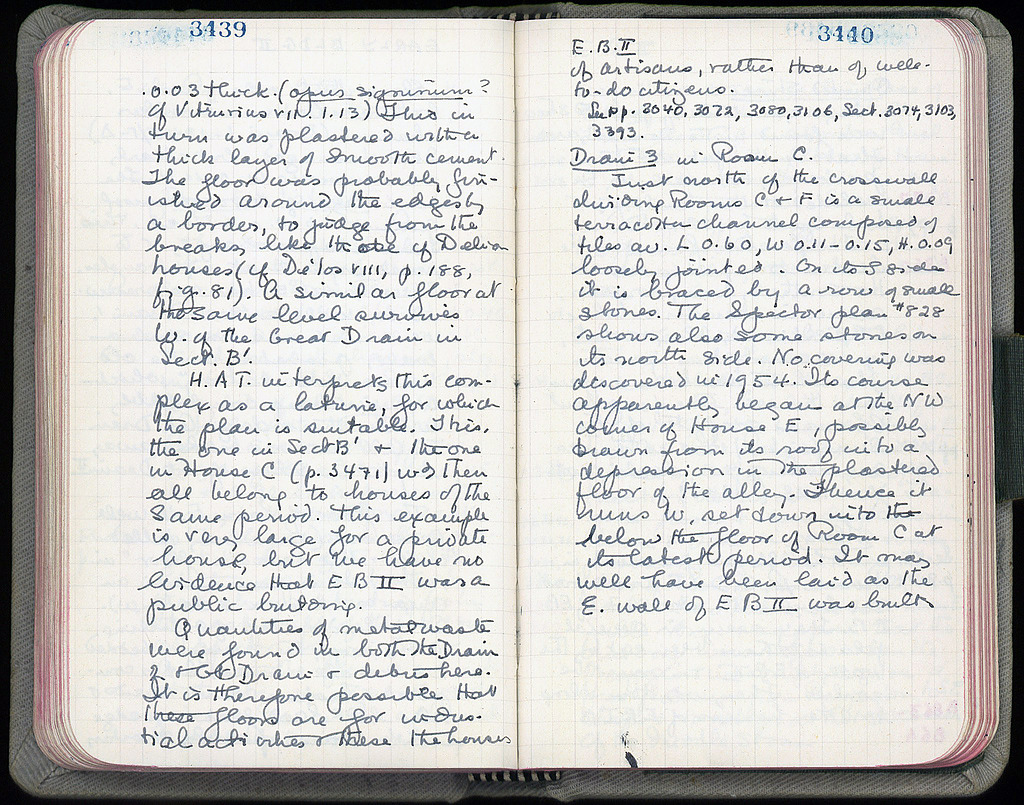 3439
.0.03 thick. (opus signinum?
cf Vitruvius VIII. 1.13) This in
turn was plastered with a
thick layer of smooth cement.
The floor was probably fin-
ished around the edges by
a border, to judge from the
breaks, like those of Delian
houses (cf Délos VIII, p. 188,
fig. 81). A similar floor at
the same level survives
W. of the Great Drain in
Sect. B'.
H.A.T. interprets this com-
plex as a latrine, for which
the plan is suitable. This,
the one in Sect B' & the one
in House C (p. 3471) would then
all belong to houses of the
same period. This example
is very large for a private
house, but we have no
evidence that E B II was a
public building.
Quantities of metal waste
were found in both the Drain
2 & Gt Drain & debris here.
It is therefore possible that
these floors are for indus-
trial activities & these the houses
3440
E.B. II
of artisans, rather than of well-
to-do citizens.
See pp. 3040, 3072, 3080, 3106, Sect. 3074, 3103,
3393.
Drain 3 in Room C.
Just north of the crosswall
dividing Rooms C & F is a small
terracotta channel composed of
tiles av. L 0.60, W 0.11-0.15, H. 0.09
loosely jointed. On its S side
it is braced by a row of small
stones. The Spector plan #828
shows also some stones on
its north side. No covering was
discovered in 1954. Its course
apparently began at the NW
corner of House E, possibly
drawn from its roof into a
depression in the plastered
floor of the alley. Thence it
runs W, set down into the
below the floor of Room C at
its latest period. It may
well have been laid as the
E. wall of E B II was built